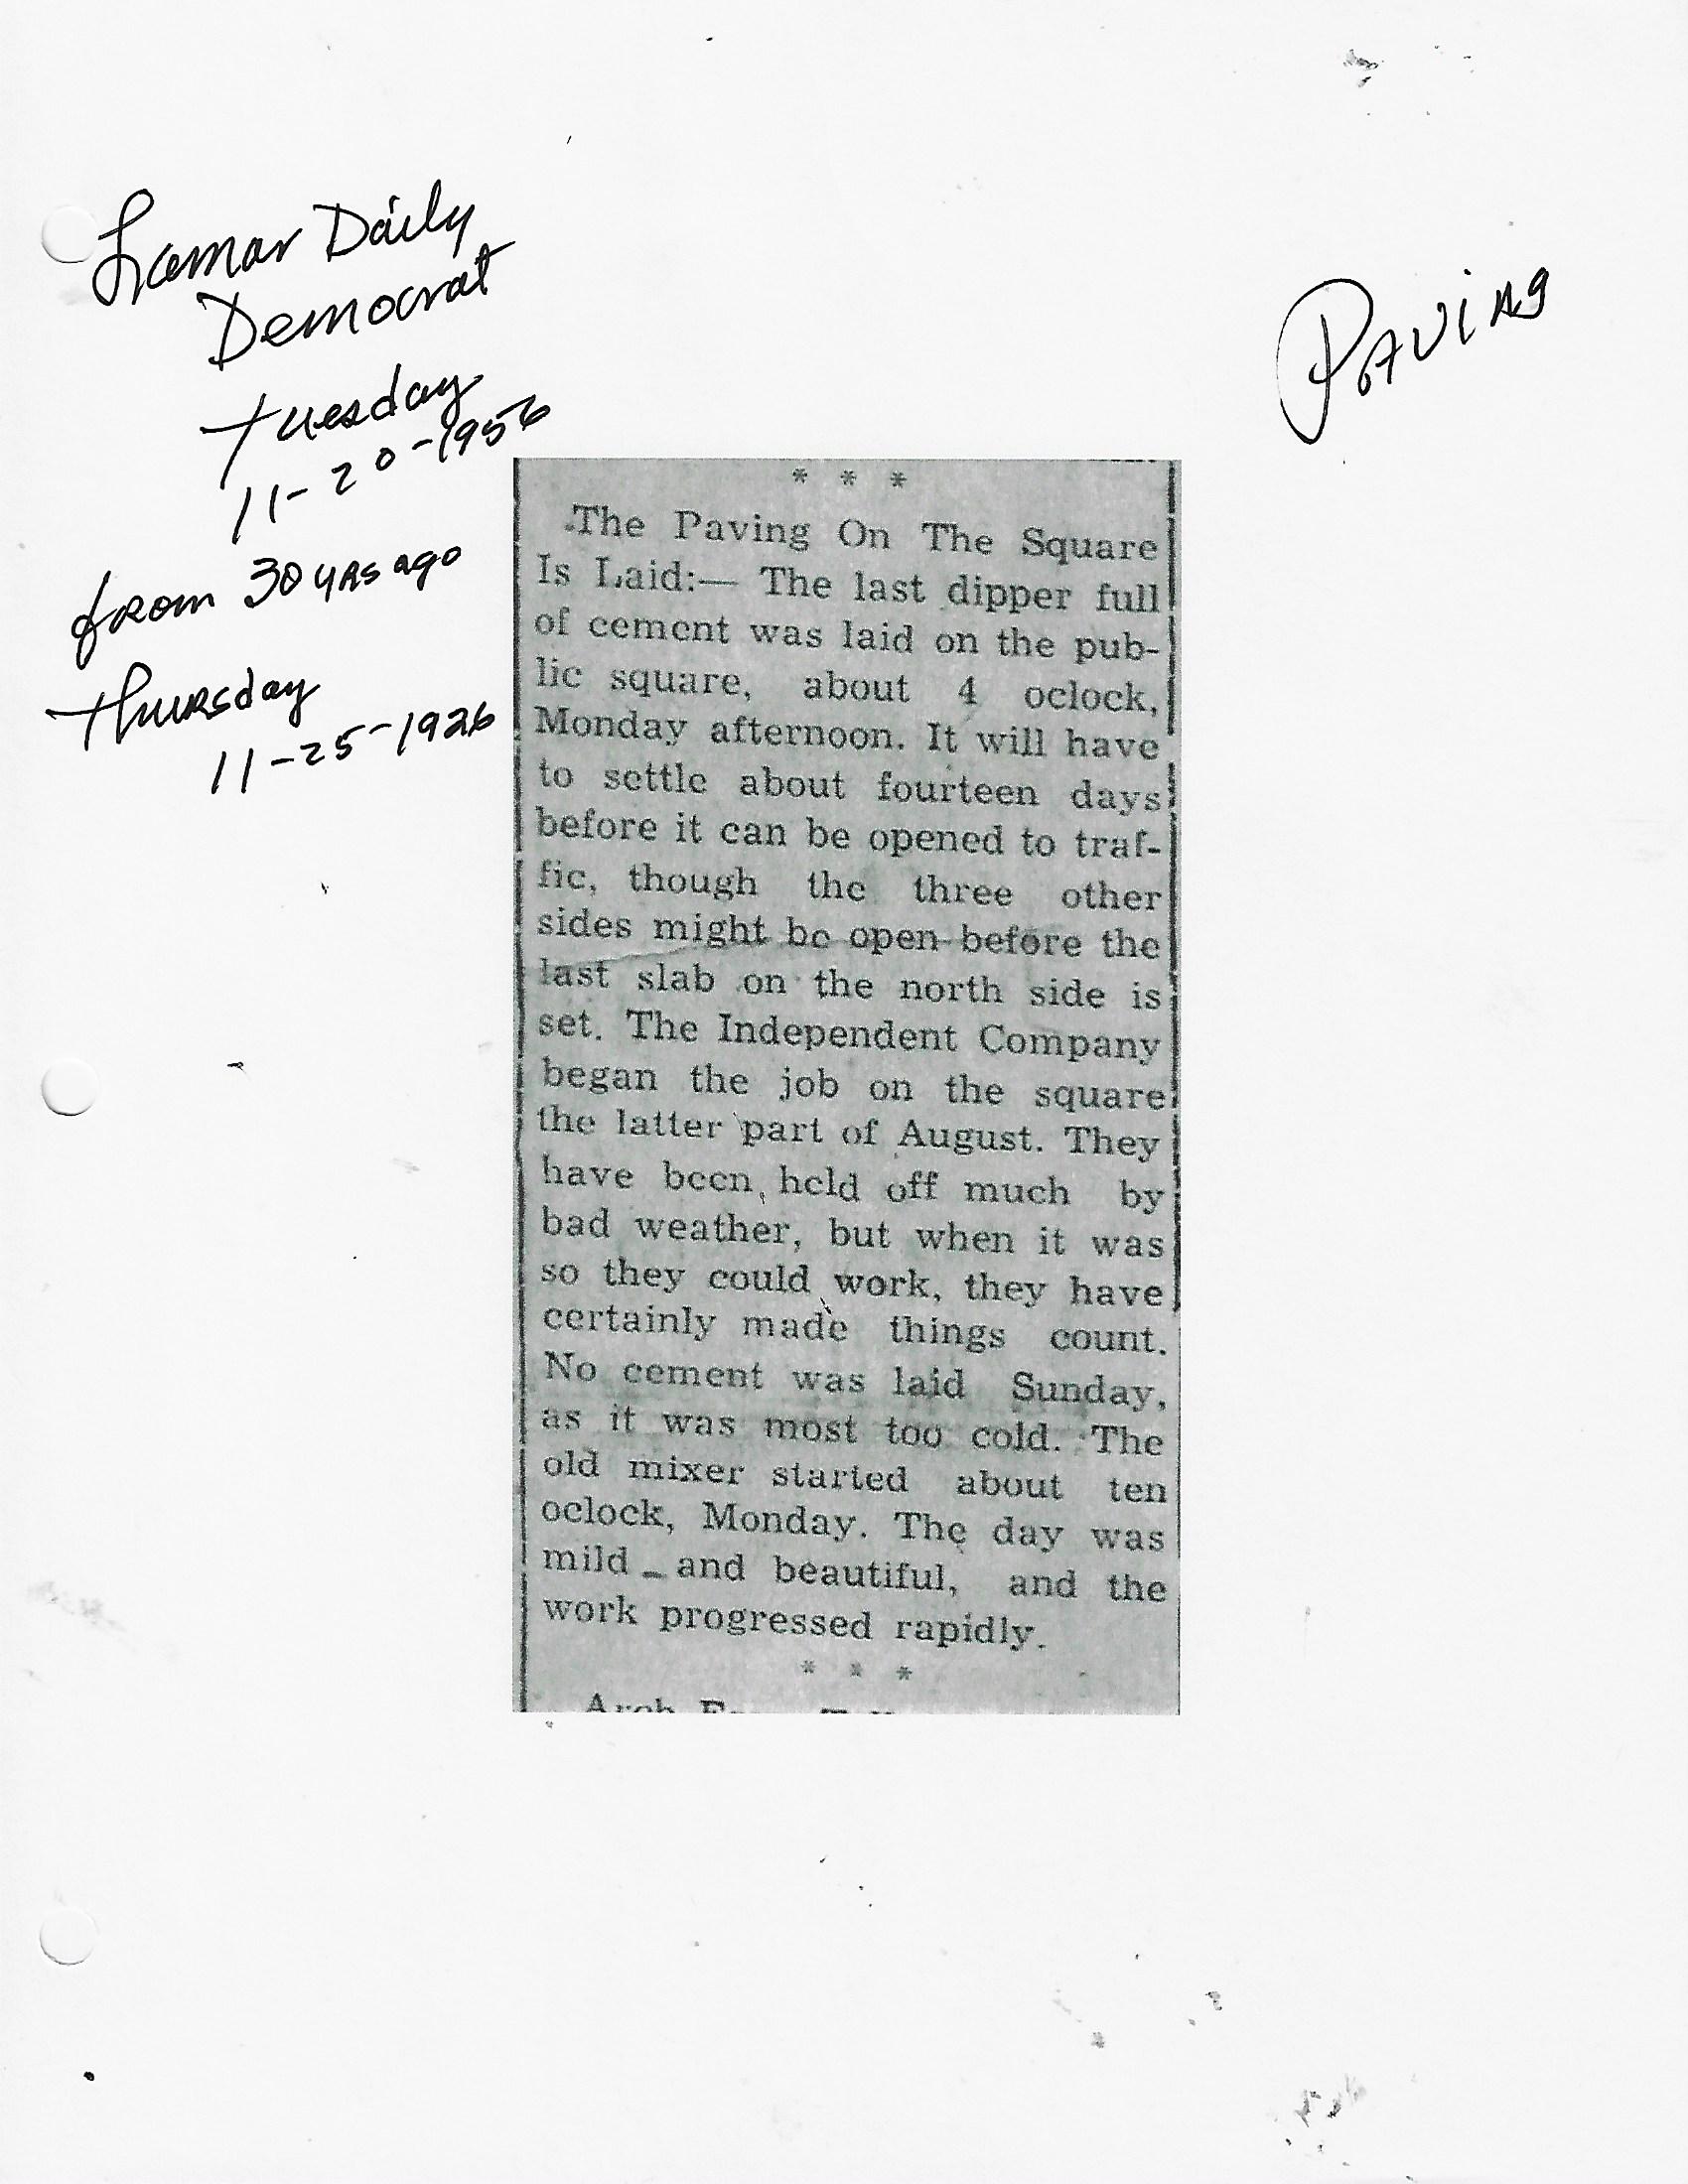 Lamar Daily
Democrat
Tuesday
11-20-1956
from 30 yrs ago
Thursday
11-25-1926
Paving
* * *
The Paving On The Square
Is Laid:— The last dipper full
of cement was laid on the pub-
lic square, about 4 oclock,
Monday afternoon. It will have
to settle about fourteen days
before it can be opened to traf-
fic, though the three other
sides might be open before the
last slab on the north side is
set. The Independent Company
began the job on the square
the latter part of August. They
have been held off much by
bad weather, but when it was
so they could work, they have
certainly made things count.
No cement was laid Sunday,
as it was most too cold. The
old mixer started about ten
oclock, Monday. The day was
mild and beautiful, and the
work progressed rapidly.
* * *
Arch